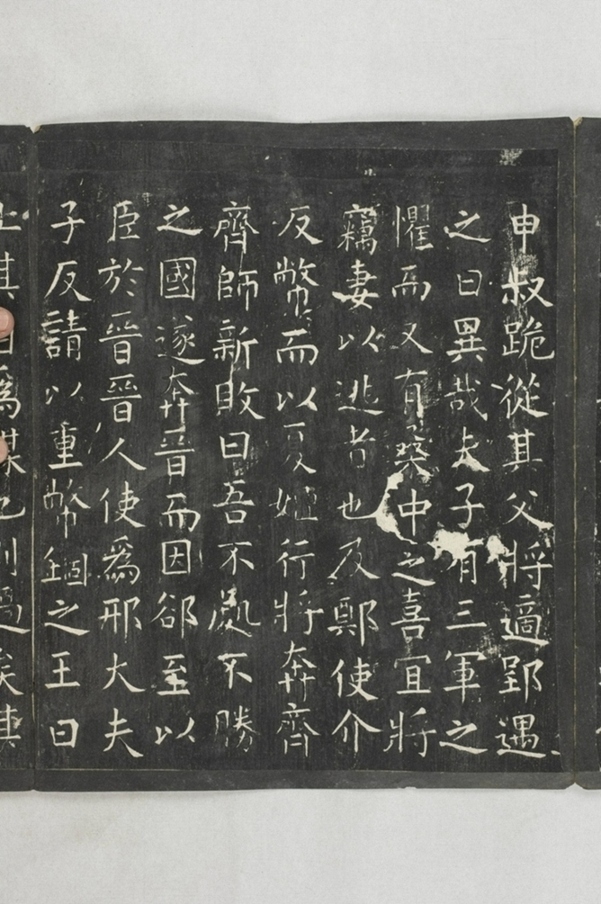 申叔跪從其父將適郢遇
之曰異哉夫子有三軍之
懼而又有桒中之喜宜將
竊妻以逃者也及鄭使介
反幣而以夏姬行將奔齊
齊師新敗曰吾不處不勝
之國遂奔晉而因郤至以
臣於晉晉人使爲邢大夫
子反請以重幣錮之王曰
止其自爲謀也則過矣其